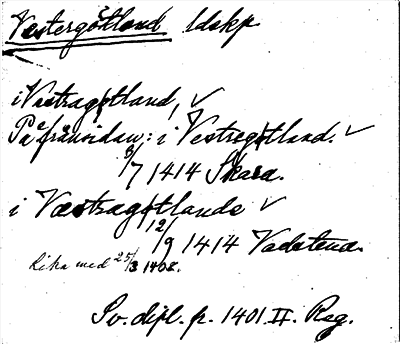 Västergötland ldskp
i Vestragøtland, ✓
På frånsidan: i Vestregøtland. ✓
3/7 1414 Skara.
i Væstragøtlande ✓
12/9 1414 Vadstena.
Lika med 25/3 1408.
Sv. dipl. fr. 1401 II. Reg.